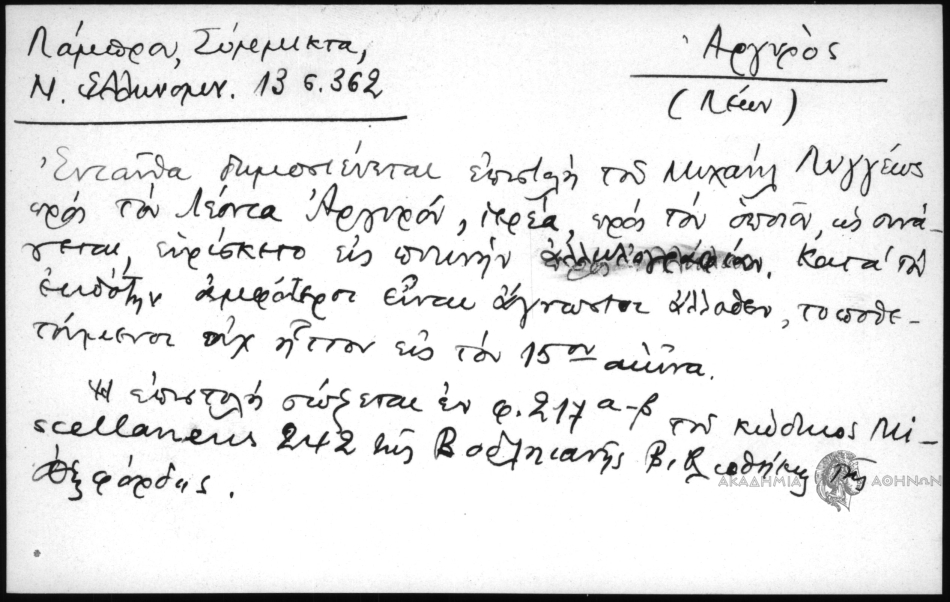 Λάμπρου, Σύμμικτα,
Ν. Ἑλληνομν. 13 σ. 362
Ἀργυρὸς
(Λέων)
Ἐνταῦθα δημοσιεύεται ἐπιστολὴ τοῦ Μιχαὴλ Λυγγέως
πρὸς τὸν Λέοντα Ἀργυρόν, ἱερέα, πρὸς τὸν ὁποῖον, ὡς συνά-
γεται, εὑρίσκετο εἰς πυκνὴν ἀλληλογραφίαν. Κατὰ τὸν
ἐκδότην ἀμφότεροι εἶναι ἄγνωστοι ἄλλοθεν, τοποθε-
τούμενοι οὐχ ἧττον εἰς τὸν 15ον αἰῶνα.
Ἡ ἐπιστολὴ σώζεται ἐν φ. 217 α-β τοῦ κώδικος Mi-
scellaneus 242 τῆς Βοδληιανῆς Βιβλιοθήκης τῆς
Ὀξφόρδης.
ΑΚΑΔΗΜΙΑ ΑΘΗΝΩΝ